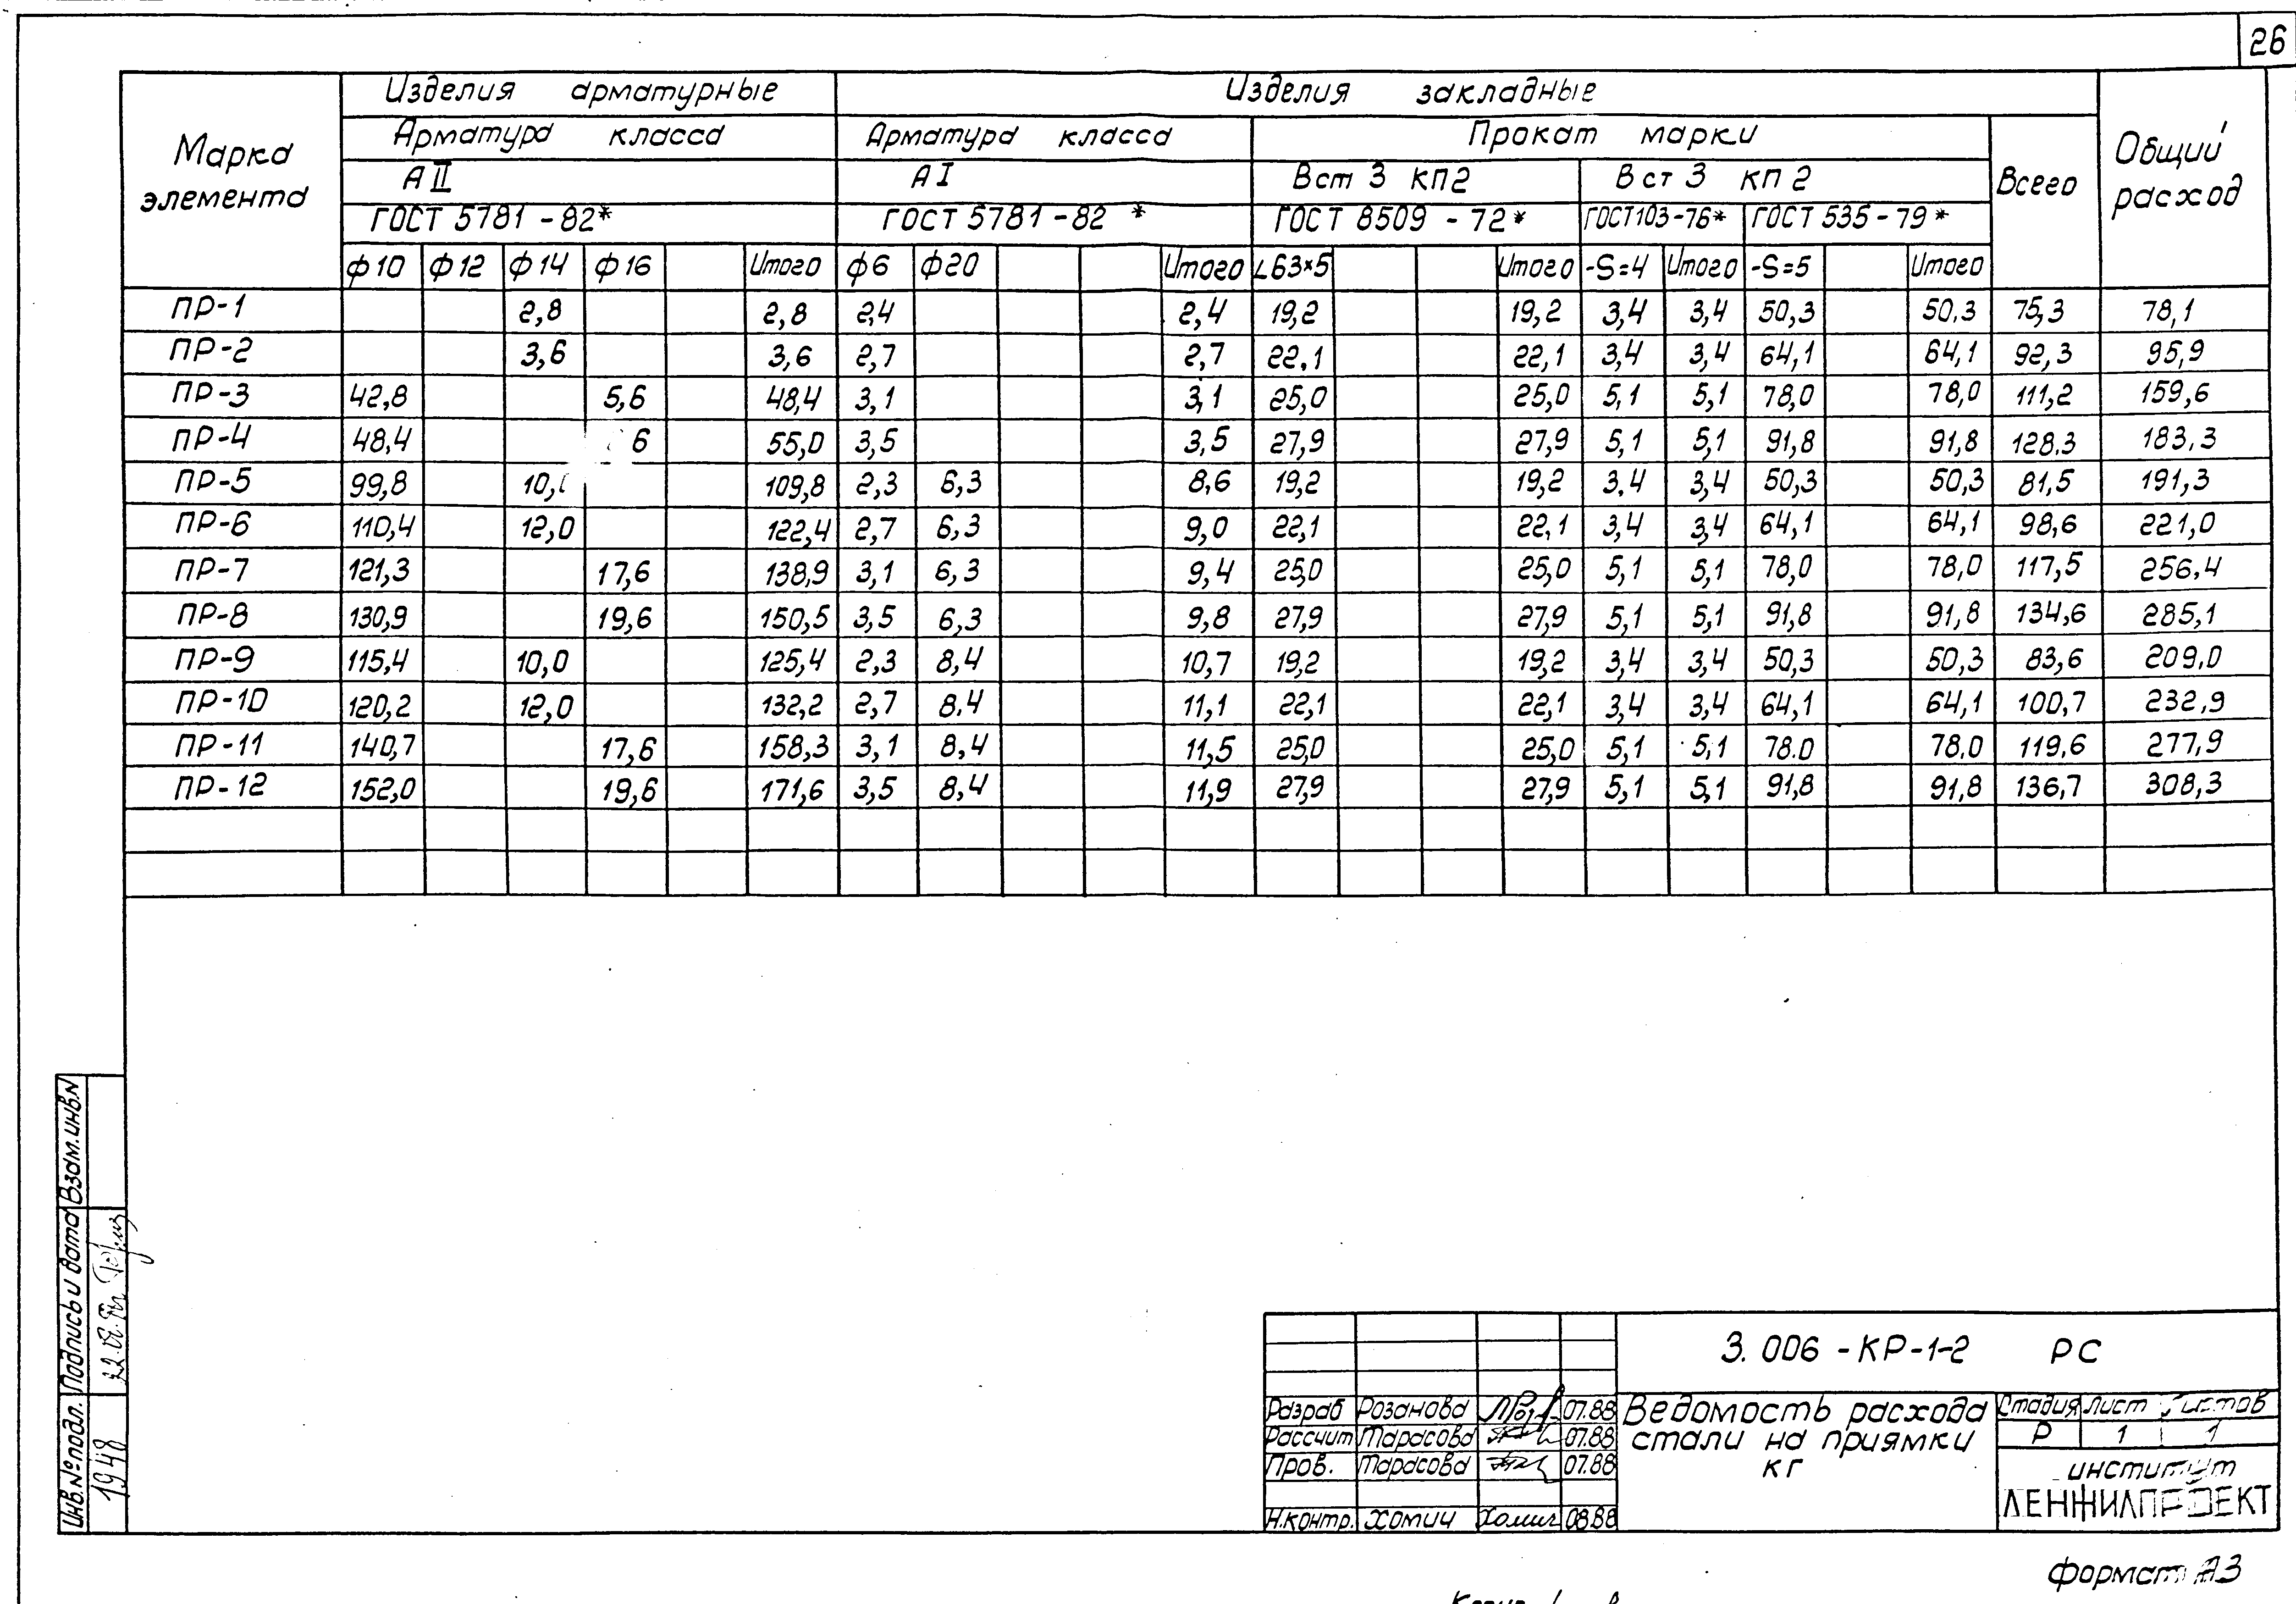 26
Марка элемента
Изделия арматурные
Изделия закладные
Общий расход
Арматура класса
Арматура класса
Прокат марки
Всего
АII
АI
Вст 3 кп2
Вст 3 кп2
ГОСТ 5781-82*
ГОСТ 5781-82*
ГОСТ 8509-72*
ГОСТ103-76*
ГОСТ 535-79*
ф10 ф12 ф14 ф16 Итого ф6 ф20 Итого L63×5 Итого -S=4 Итого -S=5 Итого
ПР-1 2,8 2,8 2,4 2,4 19,2 19,2 3,4 3,4 50,3 50,3 75,3 78,1
ПР-2 3,6 3,6 2,7 2,7 22,1 22,1 3,4 3,4 64,1 64,1 92,3 95,9
ПР-3 42,8 5,6 48,4 3,1 3,1 25,0 25,0 5,1 5,1 78,0 78,0 111,2 159,6
ПР-4 48,4 6 55,0 3,5 3,5 27,9 27,9 5,1 5,1 91,8 91,8 128,3 183,3
ПР-5 99,8 10, 109,8 2,3 6,3 8,6 19,2 19,2 3,4 3,4 50,3 50,3 81,5 191,3
ПР-6 110,4 12,0 122,4 2,7 6,3 9,0 22,1 22,1 3,4 3,4 64,1 64,1 98,6 221,0
ПР-7 121,3 17,6 138,9 3,1 6,3 9,4 25,0 25,0 5,1 5,1 78,0 78,0 117,5 256,4
ПР-8 130,9 19,6 150,5 3,5 6,3 9,8 27,9 27,9 5,1 5,1 91,8 91,8 134,6 285,1
ПР-9 115,4 10,0 125,4 2,3 8,4 10,7 19,2 19,2 3,4 3,4 50,3 50,3 83,6 209,0
ПР-10 120,2 12,0 132,2 2,7 8,4 11,1 22,1 22,1 3,4 3,4 64,1 64,1 100,7 232,9
ПР-11 140,7 17,6 158,3 3,1 8,4 11,5 25,0 25,0 5,1 5,1 78,0 78,0 119,6 277,9
ПР-12 152,0 19,6 171,6 3,5 8,4 11,9 27,9 27,9 5,1 5,1 91,8 91,8 136,7 308,3
Взам.инв.N
Подпись и дата
Инв.№подл.
1948
3.006-КР-1-2 РС
Разраб Розанова 07.88
Рассчит Тарасова 07.88
Пров. Тарасова 07.88
Н.контр. Хомич Хомич 08.88
Ведомость расхода
стали на приямки
кг
Стадия Лист Листов
Р 1 1
институт
ЛЕНЖИЛПРОЕКТ
Формат А3